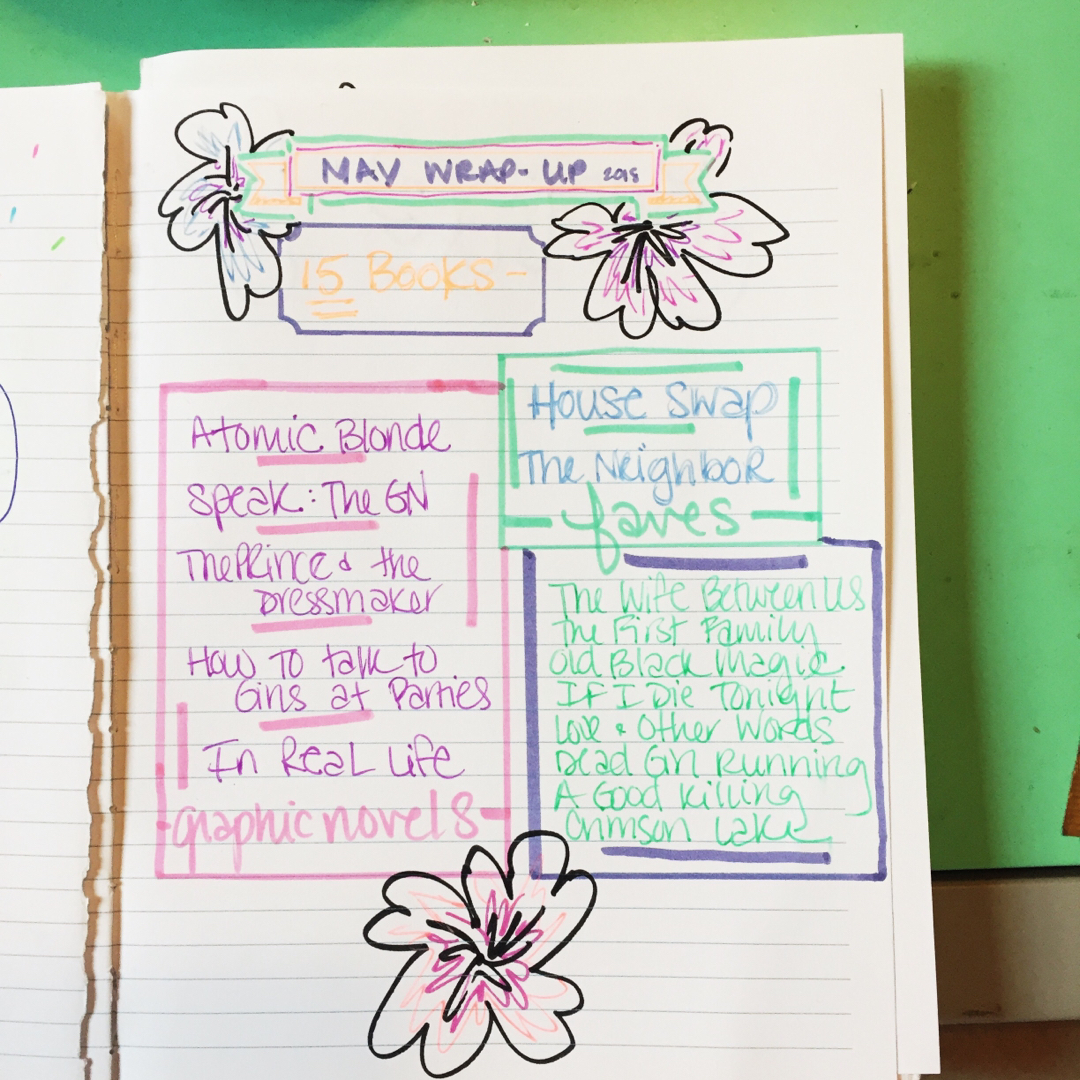 MAY WRAP-UP 2018
15 Books -
Atomic Blonde
Speak: The GN
The Prince & the
Dressmaker
How To talk to
Girls at Parties
In Real Life
graphic novels
House Swap
The Neighbor
faves
The Wife Between Us
The First Family
Old Black Magic
If I Die Tonight
Love & Other Words
Dead Girl Running
A Good Killing
Crimson Lake